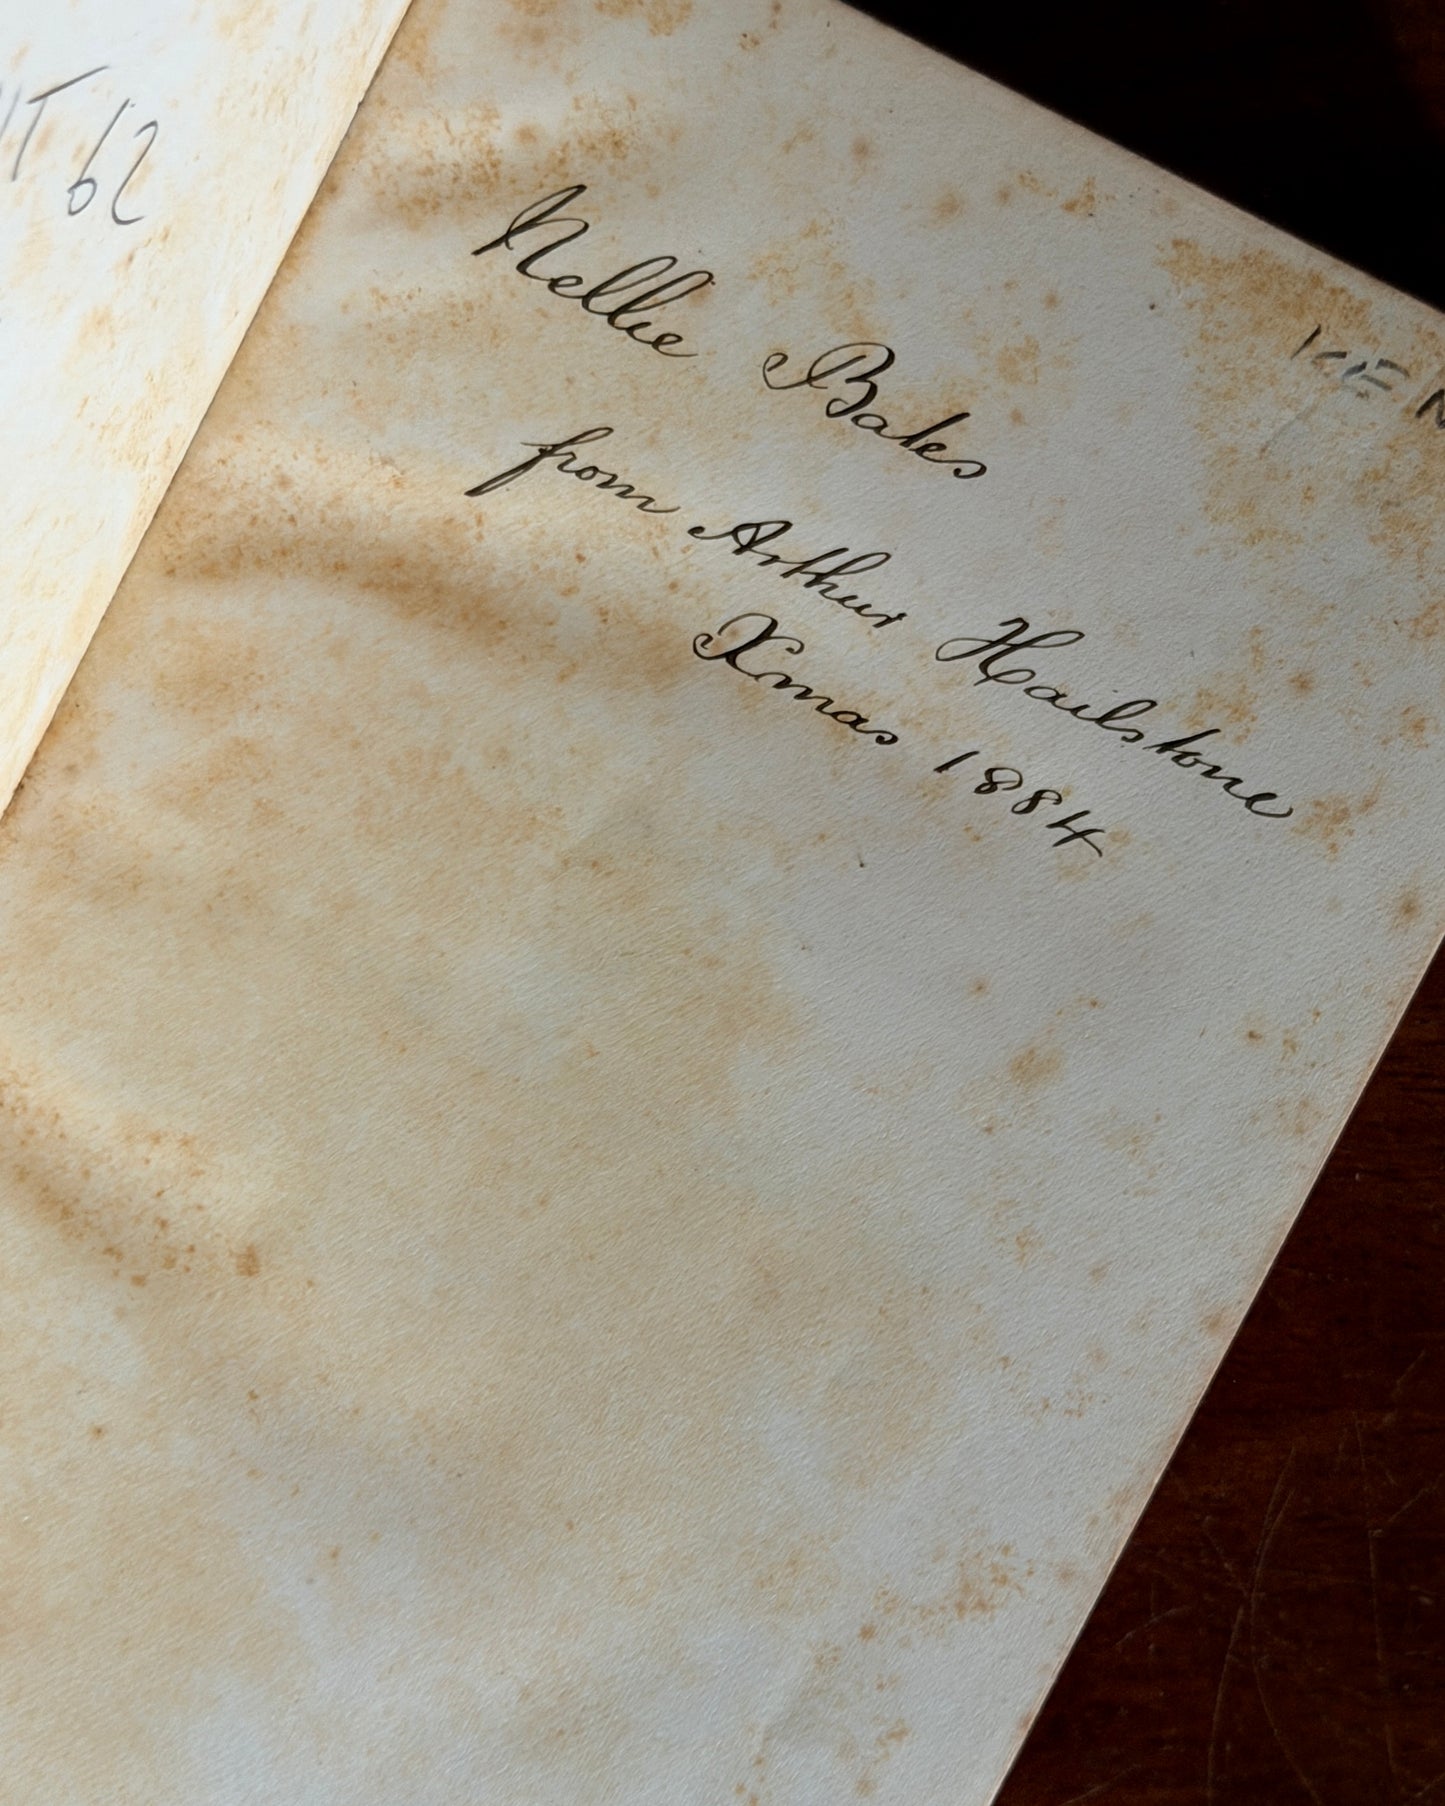 Nellie Bates
from Arthur Hailstone
Xmas 1884
62